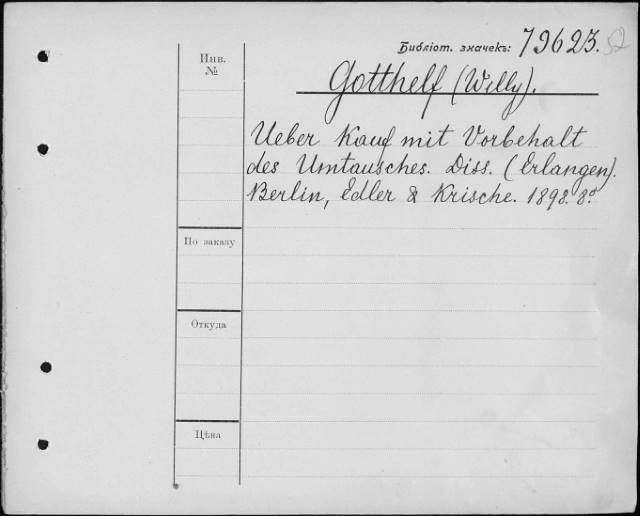 Библіот. значекъ: 79623. 52
Инв.
№
Gotthelf (Willy).
Ueber Kauf mit Vorbehalt
des Umtausches. Diss. (Erlangen).
Berlin, Edler & Krische. 1898. 8°
По заказу
Откуда
Цѣна